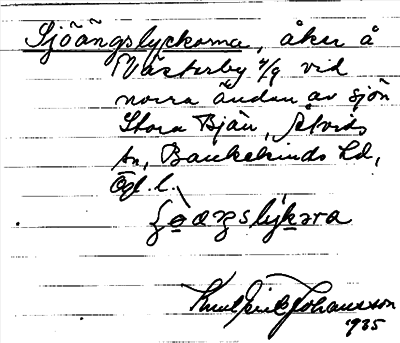 Sjöängslyckorna, åker å
Västerby s/g vid
norra ändan av sjön
Stora Bjän, Åtvids
sn, Bankekinds hd,
Ögl. l.
Knut Erik Johansson
1935